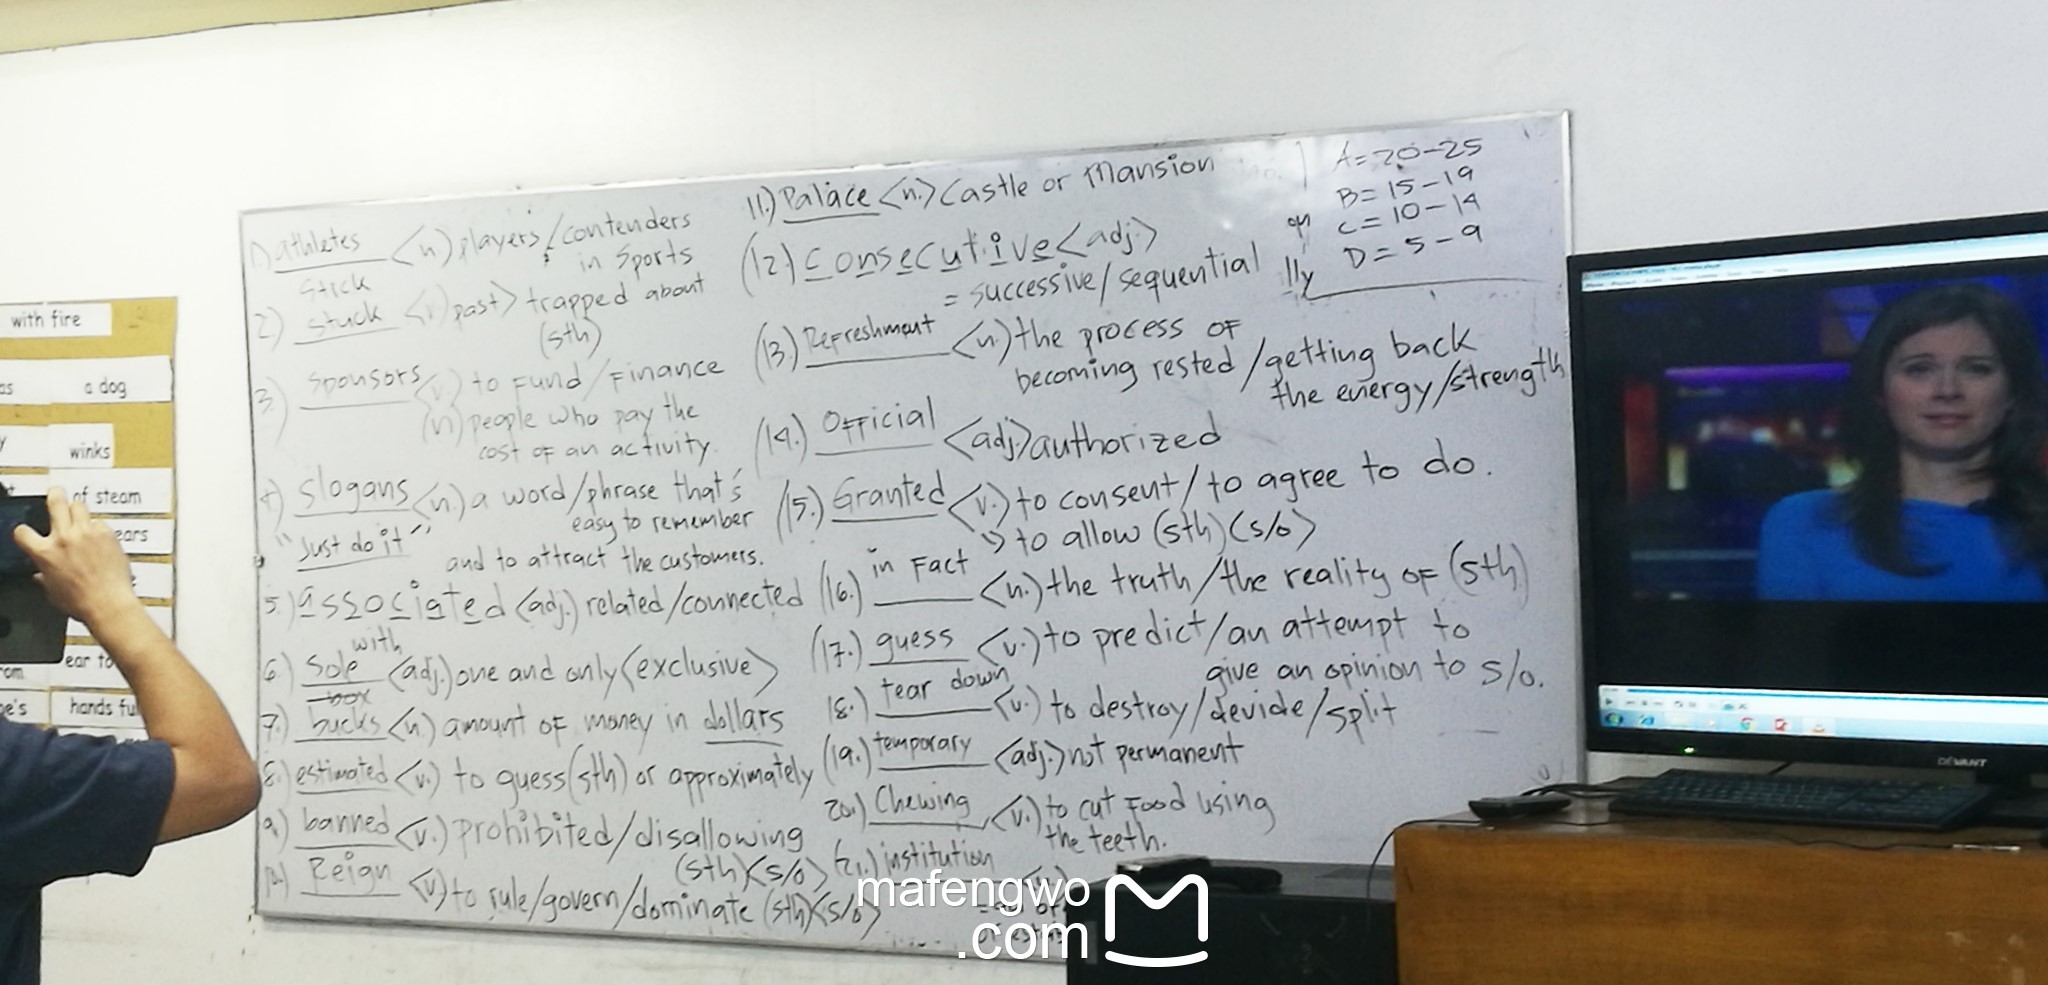 1) athletes <n) players/contenders
in sports
stick
2) stuck <v) past> trapped about
(sth)
3) sponsors <v) to fund/finance
(n) people who pay the
cost of an activity.
4) slogans <n.) a word/phrase that's
easy to remember
"Just do it" and to attract the customers.
5.) associated <adj.) related/connected
with
6.) Sole <adj.) one and only (exclusive>
box
7.) bucks <n) amount of money in dollars
8.) estimated <v.) to guess (sth) or approximately
9.) banned <v.) prohibited/disallowing
(sth)<s/o>
10.) Reign <v) to rule/govern/dominate (sth)<s/o>
11.) Palace <n.) Castle or Mansion
(12.) Consecutive <adj.>
= successive/sequential
(13.) Refreshment <n.) the process of
becoming rested/getting back
the energy/strength
(14.) Official <adj.> authorized
(15.) Granted <v.) to consent/to agree to do.
to allow (sth)(s/o>
(16.) in Fact <n.) the truth/the reality of (sth)
(17.) guess <v.) to predict/an attempt to
give an opinion to s/o.
18.) tear down <v.) to destroy/devide/split
(19.) temporary <adj.> not permanent
20.) Chewing <v.) to cut food using
the teeth.
(21.) institution
A = 20-25
B = 15-19
C = 10-14
D = 5-9
lly
with fire
as
a dog
y
winks
of steam
ears
ear to
om
e's
hands fu
DEVANT
mafengwo
.com